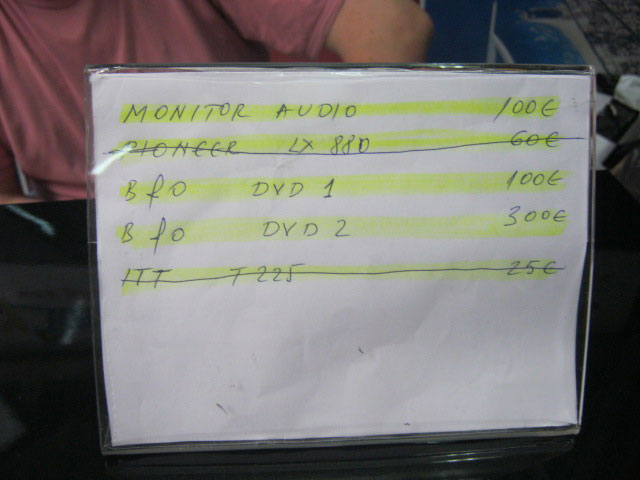 MONITOR AUDIO 100€
PIONEER LX 880 60€
B&O DVD 1 100€
B&O DVD 2 300€
ITT T225 25€